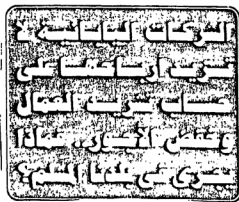 الشركات اليابانية لا
تزيد أرباحها على
حساب تسريح العمال
وخفض الأجور.. فماذا
يجرى فى بلدنا المسلم؟